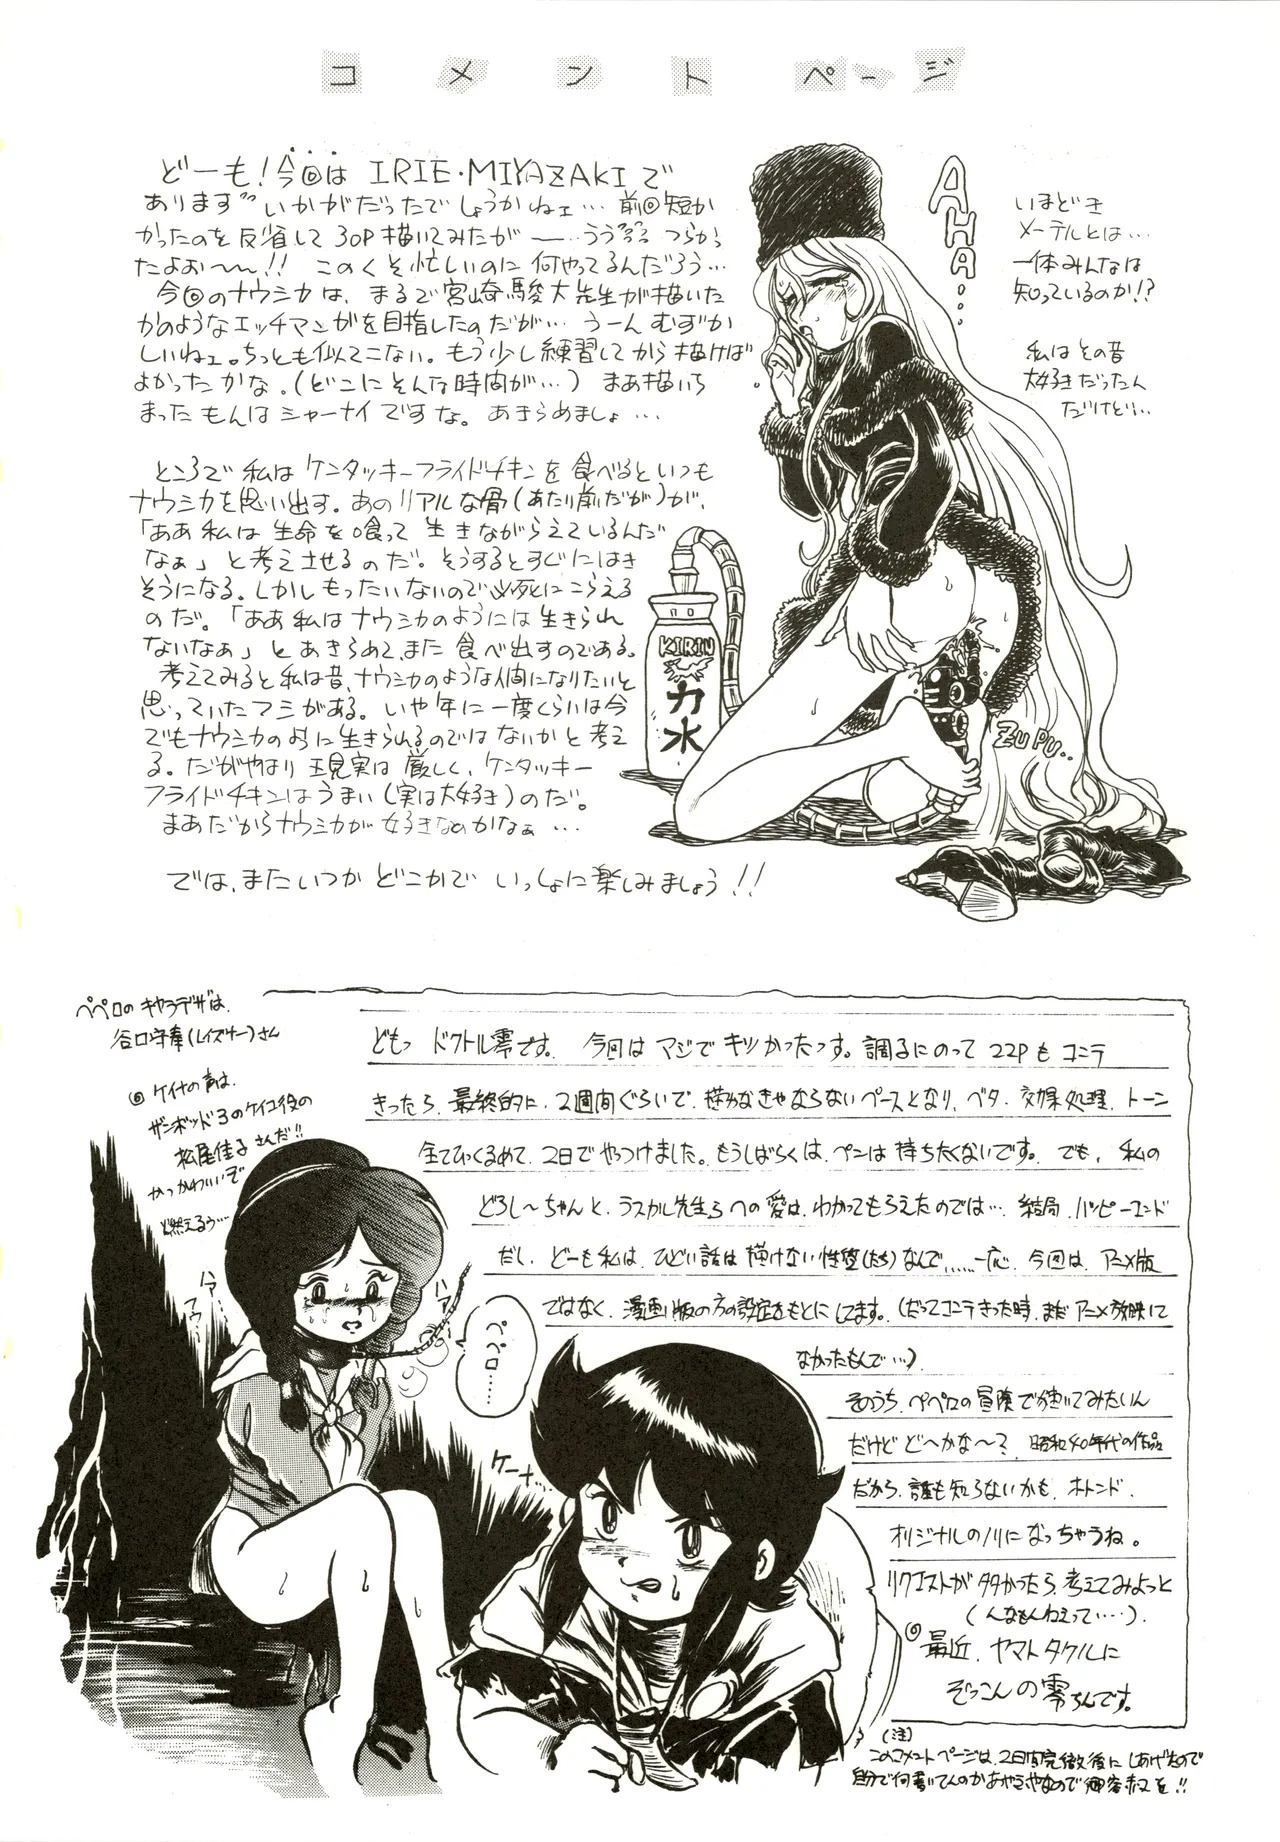 コメントページ
どーも!今回は IRIE・MIYAZAKIで
あります〃いかがだったでしょうかねェ…前回短か
かったのを反省して30P描いてみたが――…うう〃〃つらかっ
たよお〜〜!! このくそ忙しいのに何やってるんだろう…
今回のナウシカは、まるで宮崎駿大先生が描いた
かのようなエッチマンガを目指したのだが…うーんむずか
しいねェ。ちっとも似てこない。もう少し練習してから描けば
よかったかな。(どこにそんな時間が…)まあ描いち
まったもんはシャーナイですな。あきらめましょ…
ところで私はケンタッキーフライドチキンを食べるといつも
ナウシカを思い出す。あのリアルな骨(あたり前だが)が、
「ああ私は生命を喰って生きながらえているんだ
なぁ」と考えさせるのだ。そうするとすぐにはき
そうになる。しかしもったいないので必死にこらえる
のだ。「ああ私はナウシカのようには生きられ
ないなぁ」とあきらめて、また食べ出すのである。
考えてみると私は昔、ナウシカのような人間になりたいと
思っていたフシがある。いや年に一度くらいは今
でもナウシカのように生きられるのではないかと考え
る。だがやはり現実は厳しく、ケンタッキー
フライドチキンはうまい(実は大好き)のだ。
まあだからナウシカが好きなのかなぁ…
では、またいつかどこかでいっしょに楽しみましょう!!
AHA…
いまどき
メーテルとは…
一体みんなは
知っているのか!?
私はその昔
大好きだったん
だけど…
KIRIN
力水
ZUPU..
ペペロのキャラデザは、
谷口守泰(レイズナー)さん
◎ケイナの声は、
ザンボット3のケイコ役の
松尾佳子さんだ!!
かっかわいいぞ
燃えるう…
ハァ…
ハァ…
ペペロ…
ケーナ…
どもっ ドクトル零です。 今回はマジでキツかったっす。調子にのって22Pもコンテ
きったら、最終的に、2週間ぐらいで、描かなきゃならないペースとなり、ベタ、効果処理、トーン
全てひっくるめて、2日でやっつけました。もうしばらくは、ペンは持ちたくないです。でも、私の
どろし〜ちゃんと、ラスカル先生らへの愛は、わかってもらえたのでは… 結局、ハッピーエンド
だし、どーも私は、ひどい話は描けない性質(たち)なんで……一応、今回は、アニメ版
ではなく、漫画版の方の設定をもとにしてます。(だってコンテきった時、まだアニメ放映して
なかったもんで…)
そのうち、ペペロの冒険で描いてみたいん
だけどどーかな〜? 昭和40年代の作品
だから、誰も知らないかも、ホトンド、
オリジナルのノリになっちゃうね。
リクエストが多かったら、考えてみよっと
(んなもんねえって……)。
◎最近、ヤマトタケルに
ぞっこんの零ちんです。
(注)
このコメントページは、2日間完徹後にしあげたので
自分で何書いてんのかあやふやなので御容赦を!!